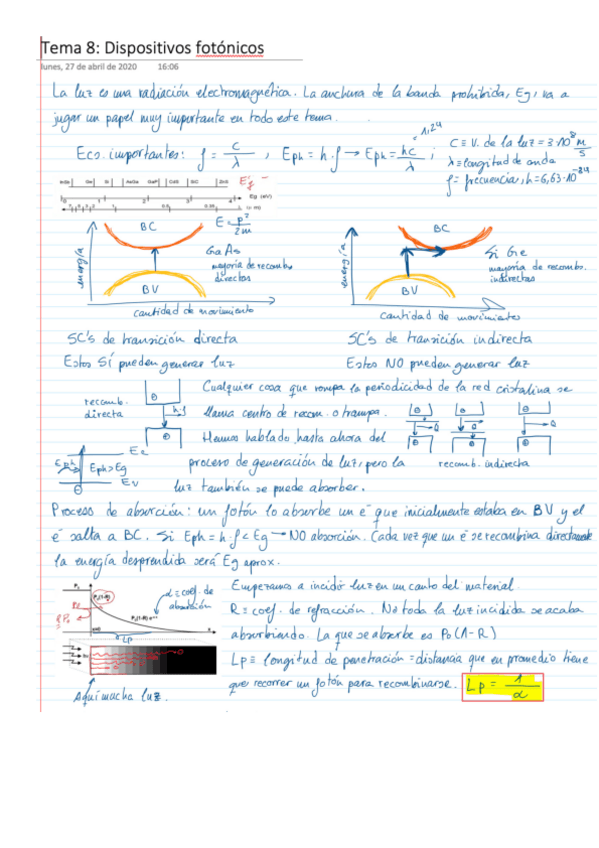 Tema 8: Dispositivos fotónicos
lunes, 27 de abril de 2020 16:06
La luz es una radiación electromagnética. La anchura de la banda prohibida, Eg, va a
jugar un papel muy importante en todo este tema.
Ecs. importantes: f = c/λ , Eph = h·f → Eph = hc/λ ;
= 1,24
C ≡ V. de la luz = 3·10^8 m/s
λ ≡ longitud de onda
f ≡ frecuencia, h = 6,63·10^-34
Ge Si GaAs GaP CdS SiC ZnS
Eg
0 1 2 3 4 Eg (eV)
E = p²/2m
energía
BC
BV
GaAs
mayoría de recomb.
directas
cantidad de movimiento
energía
BC
BV
Si Ge
mayoría de recomb.
indirectas
cantidad de movimientos
SC's de transición directa
SC's de transición indirecta
Estos SÍ pueden generar luz
Estos NO pueden generar luz
recomb.
directa
h·f
Cualquier cosa que rompa la periodicidad de la red cristalina se
llama centro de recom. o trampa.
Hemos hablado hasta ahora del
proceso de generación de luz, pero la
luz también se puede absorber.
recomb. indirecta
Eph
Eph>Eg
Ev
Proceso de absorción: un fotón lo absorbe un e⁻ que inicialmente estaba en BV y el
e⁻ salta a BC. Si Eph = h·f < Eg → NO absorción. Cada vez que un e⁻ se recombina directamente
la energía desprendida será Eg aprox.
P₀
P₀(1-R)
RP₀
α ≡ coef. de
absorción
Lp
x
Aquí mucha luz.
Empezamos a incidir luz en un canto del material
R ≡ coef. de refracción. No toda la luz incidida se acaba
absorbiendo. La que se absorbe es P₀(1-R)
Lp ≡ longitud de penetración = distancia que en promedio tiene
que recorrer un fotón para recombinarse. Lp = 1/α